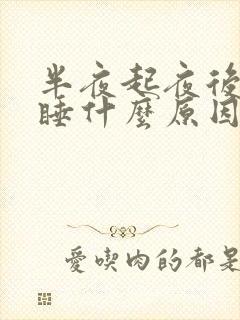 半夜起夜後
睡什麼原因
愛喫肉的都是